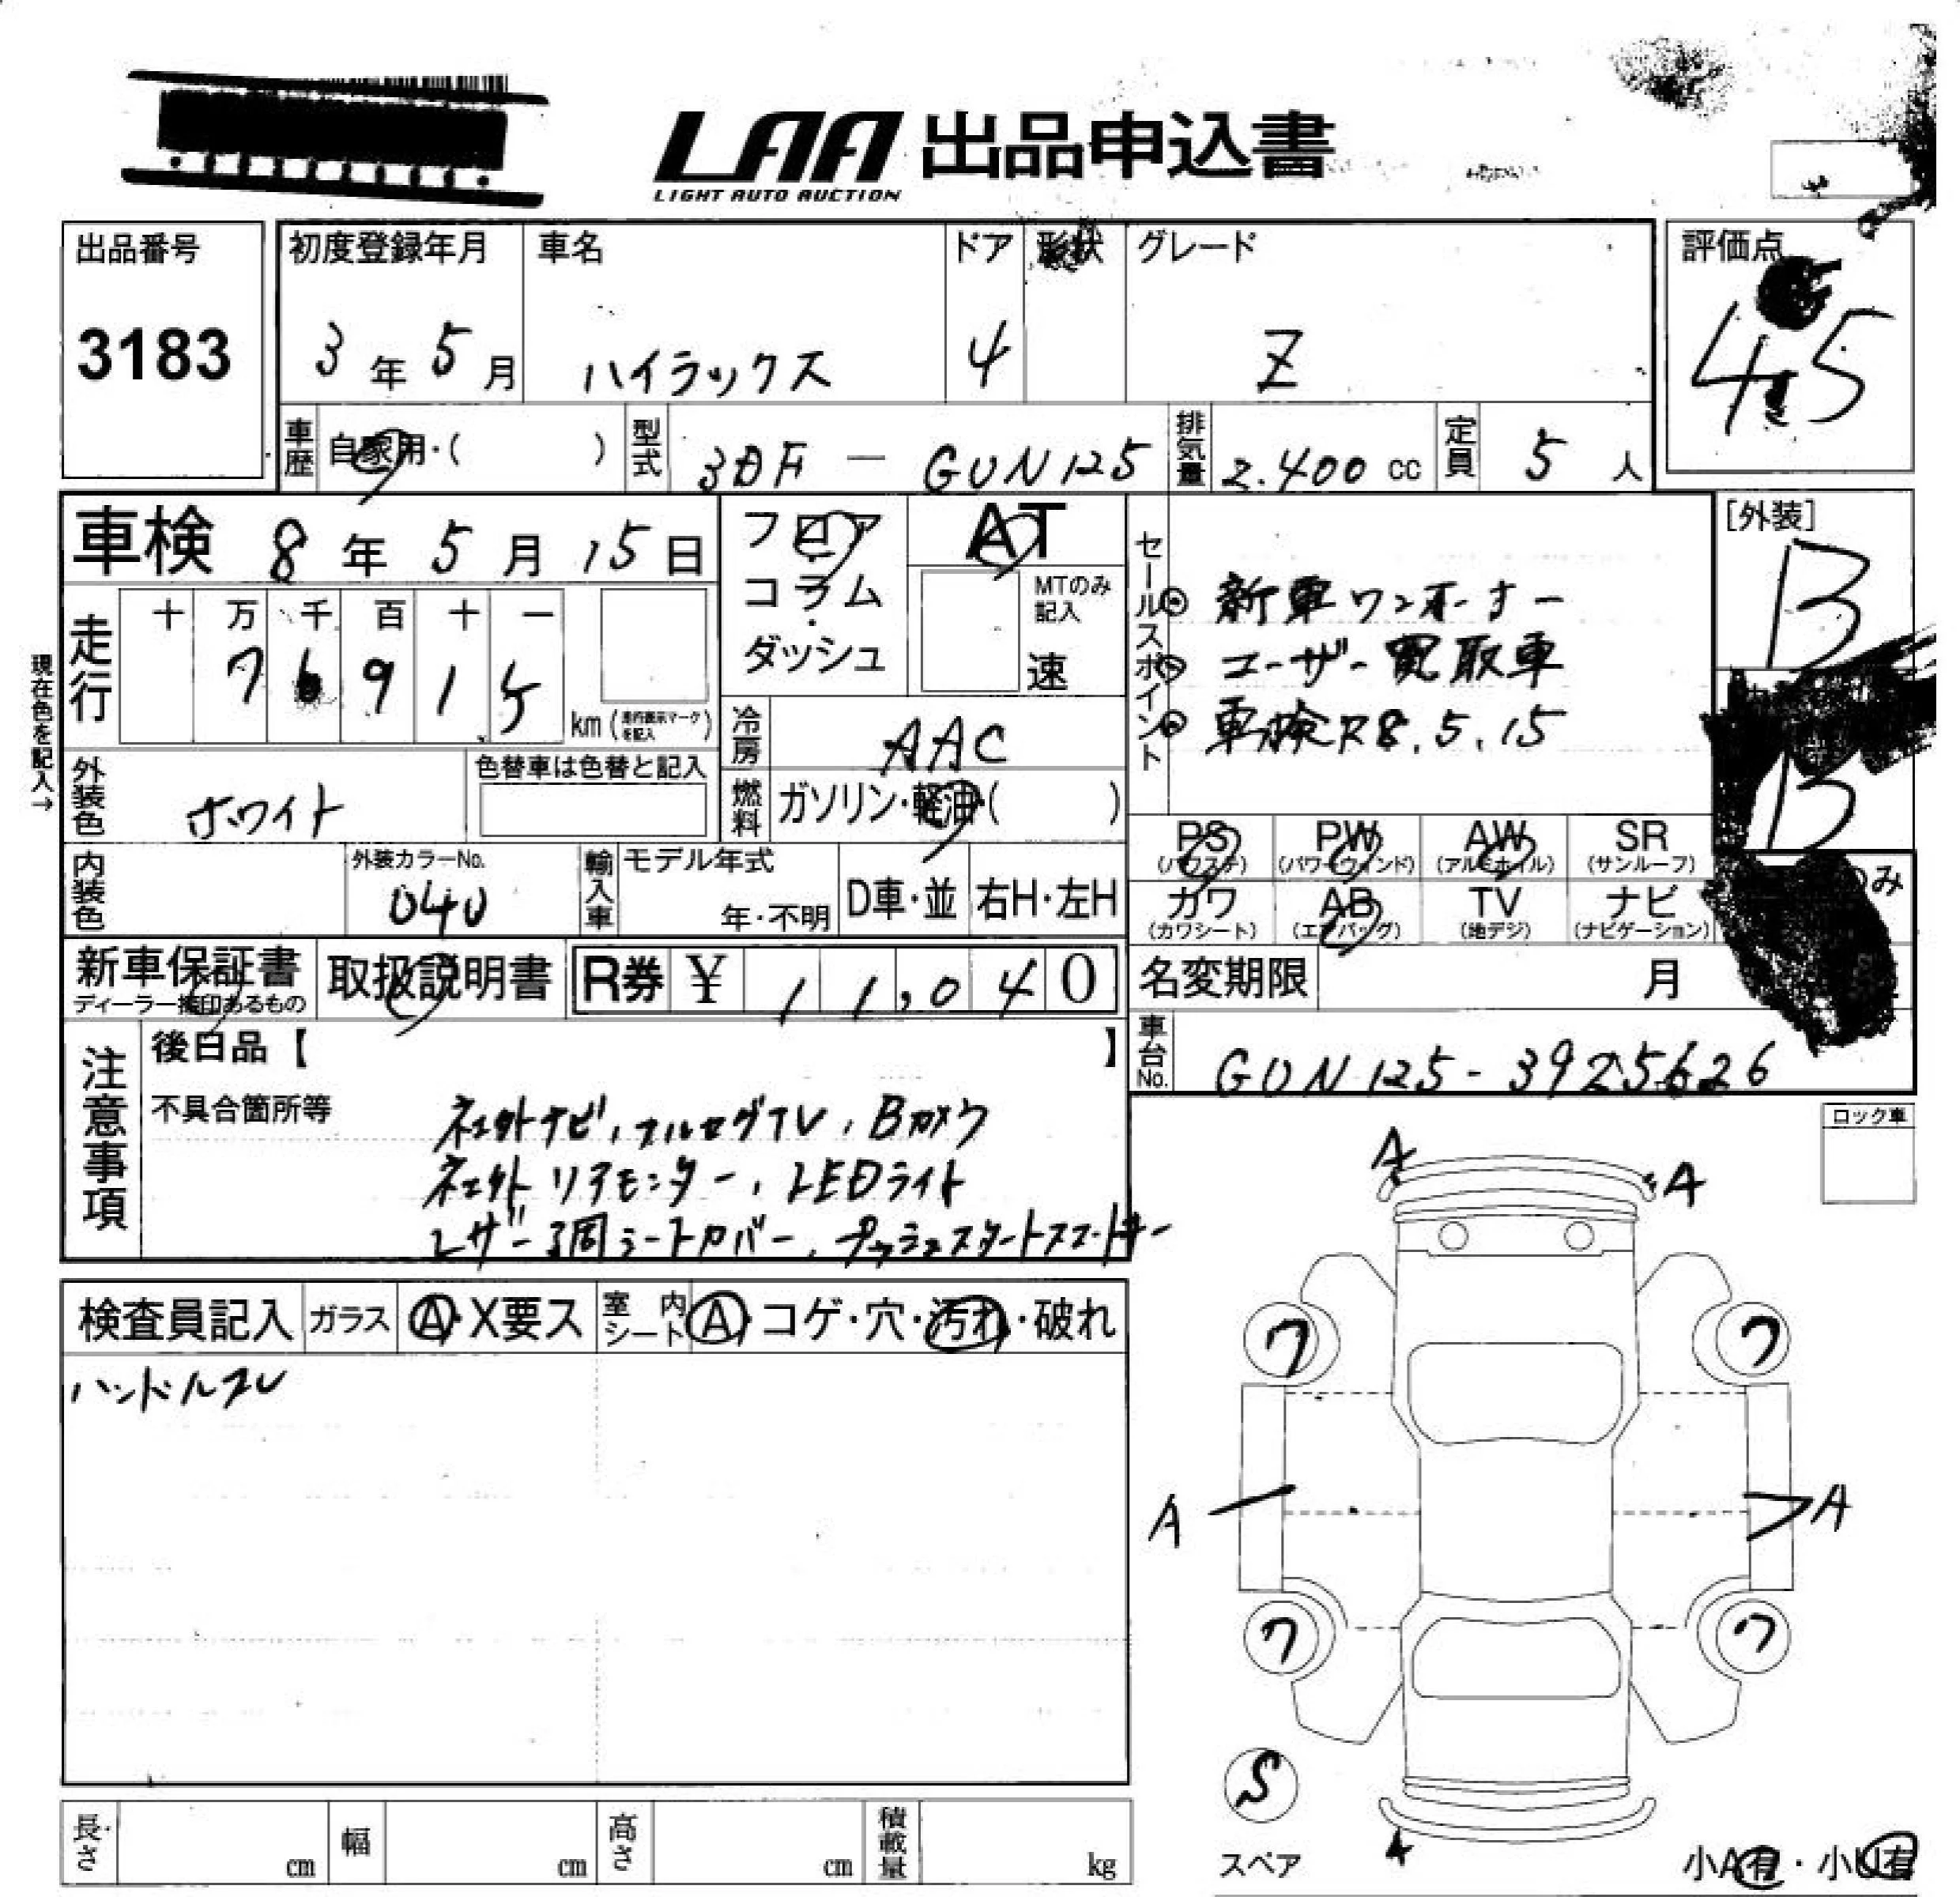 LAA 出品申込書
LIGHT AUTO AUCTION
出品番号
3183
初度登録年月
3年5月
車名
ハイラックス
ドア
4
形状
グレード
Z
評価点
4.5
車歴
自家用・( )
型式
3DF - GUN125
排気量
2.400 cc
定員
5人
車検 8年5月15日
フロア
コラム
ダッシュ
AT
MTのみ記入
速
セールスポイント
◎ 新車ワンオーナー
◎ ユーザー買取車
◎ 車検R8.5.15
[外装]
B
B
のみ
現在色を記入→
走行
十 万 千 百 十 一
7 6 9 1 5
km (走行表示マークを記入)
冷房
AAC
外装色
ホワイト
色替車は色替と記入
燃料
ガソリン・軽油・( )
PS (パワステ)
PW (パワーウィンド)
AW (アルミホイル)
SR (サンルーフ)
カワ (カワシート)
AB (エアバッグ)
TV (地デジ)
ナビ (ナビゲーション)
内装色
外装カラーNo.
040
輸入車
モデル年式
年・不明
D車・並
右H・左H
新車保証書
ディーラー捺印あるもの
取扱説明書
R券 ¥ 11,040
名変期限
月
車台No.
GUN125-3925626
注意事項
後日品【 】
不具合箇所等
社外ナビ, フルセグTV, Bカメラ
社外リアモニター, LEDライト
レザー調シートカバー, プッシュスタートスマートキー
ロック車
検査員記入
ガラス
A・X要ス
室内シート
A・コゲ・穴・汚れ・破れ
ハンドルスレ
A
A
ワ
ワ
A
A
ワ
ワ
S
スペア
A
小A有・小U有
長さ cm
幅 cm
高さ cm
積載量 kg